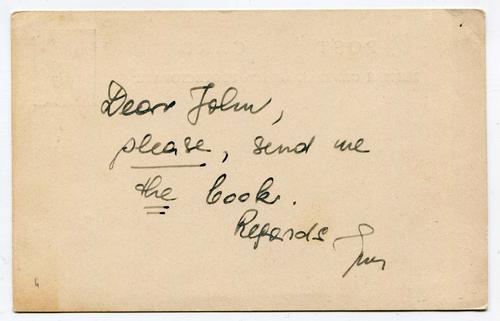 Dear John,
please, send me
the book.
Regards,